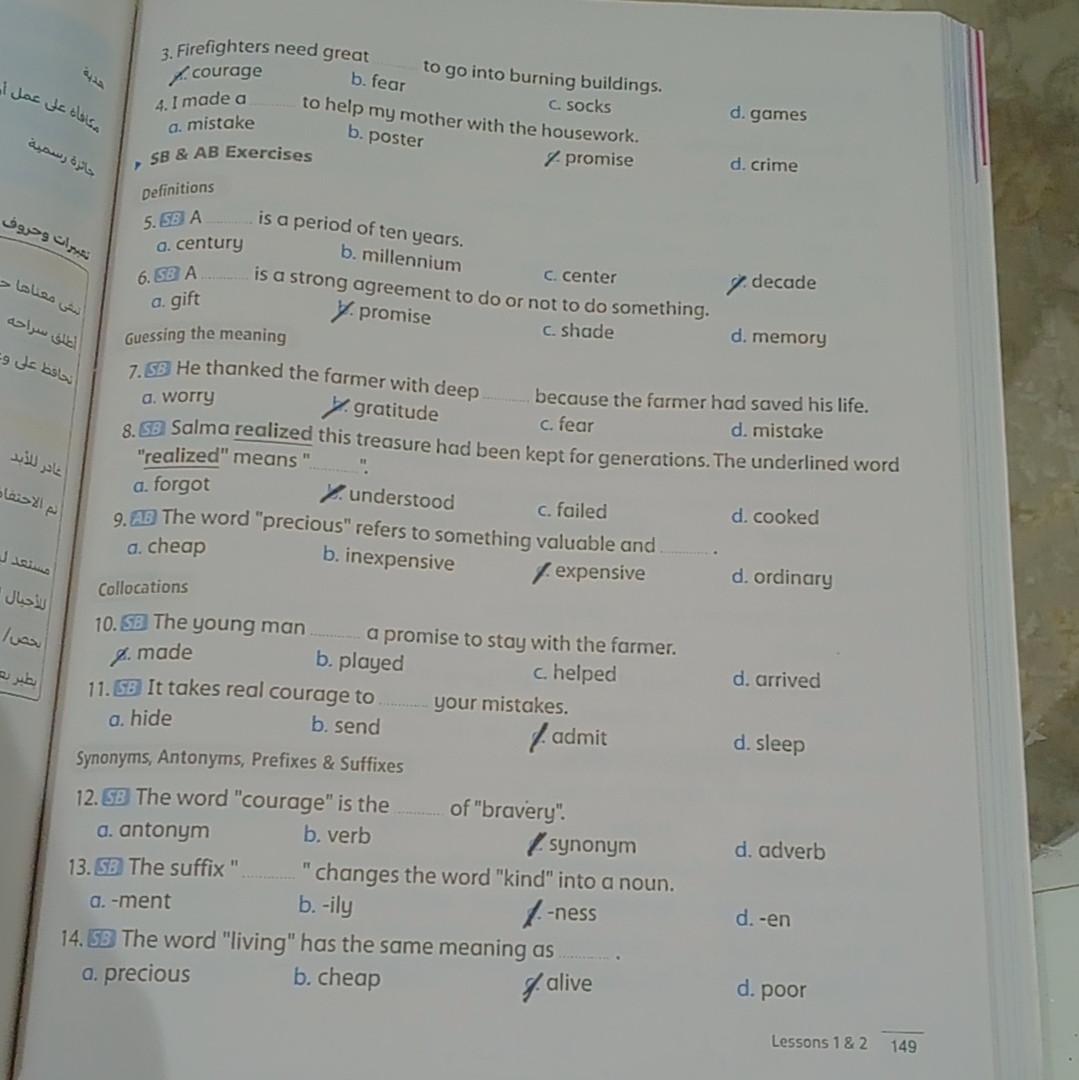 هدية
مكافأة على عمل
جائزة رسمية
تعبيرات وحروف
تبقى معناها
أطلق سراحه
تحافظ على
غادر للأبد
تم
مستعد
للأجيال
3. Firefighters need great ........ to go into burning buildings.
a. courage b. fear c. socks d. games
4. I made a ........ to help my mother with the housework.
a. mistake b. poster c. promise d. crime
SB & AB Exercises
Definitions
5. SB A ........ is a period of ten years.
a. century b. millennium c. center d. decade
6. SB A ........ is a strong agreement to do or not to do something.
a. gift b. promise c. shade d. memory
Guessing the meaning
7. SB He thanked the farmer with deep ........ because the farmer had saved his life.
a. worry b. gratitude c. fear d. mistake
8. SB Salma realized this treasure had been kept for generations. The underlined word
"realized" means "........".
a. forgot b. understood c. failed d. cooked
9. AB The word "precious" refers to something valuable and ........ .
a. cheap b. inexpensive c. expensive d. ordinary
Collocations
10. SB The young man ........ a promise to stay with the farmer.
a. made b. played c. helped d. arrived
11. SB It takes real courage to ........ your mistakes.
a. hide b. send c. admit d. sleep
Synonyms, Antonyms, Prefixes & Suffixes
12. SB The word "courage" is the ........ of "bravery".
a. antonym b. verb c. synonym d. adverb
13. SB The suffix "........" changes the word "kind" into a noun.
a. -ment b. -ily c. -ness d. -en
14. SB The word "living" has the same meaning as ........ .
a. precious b. cheap c. alive d. poor
Lessons 1 & 2 149